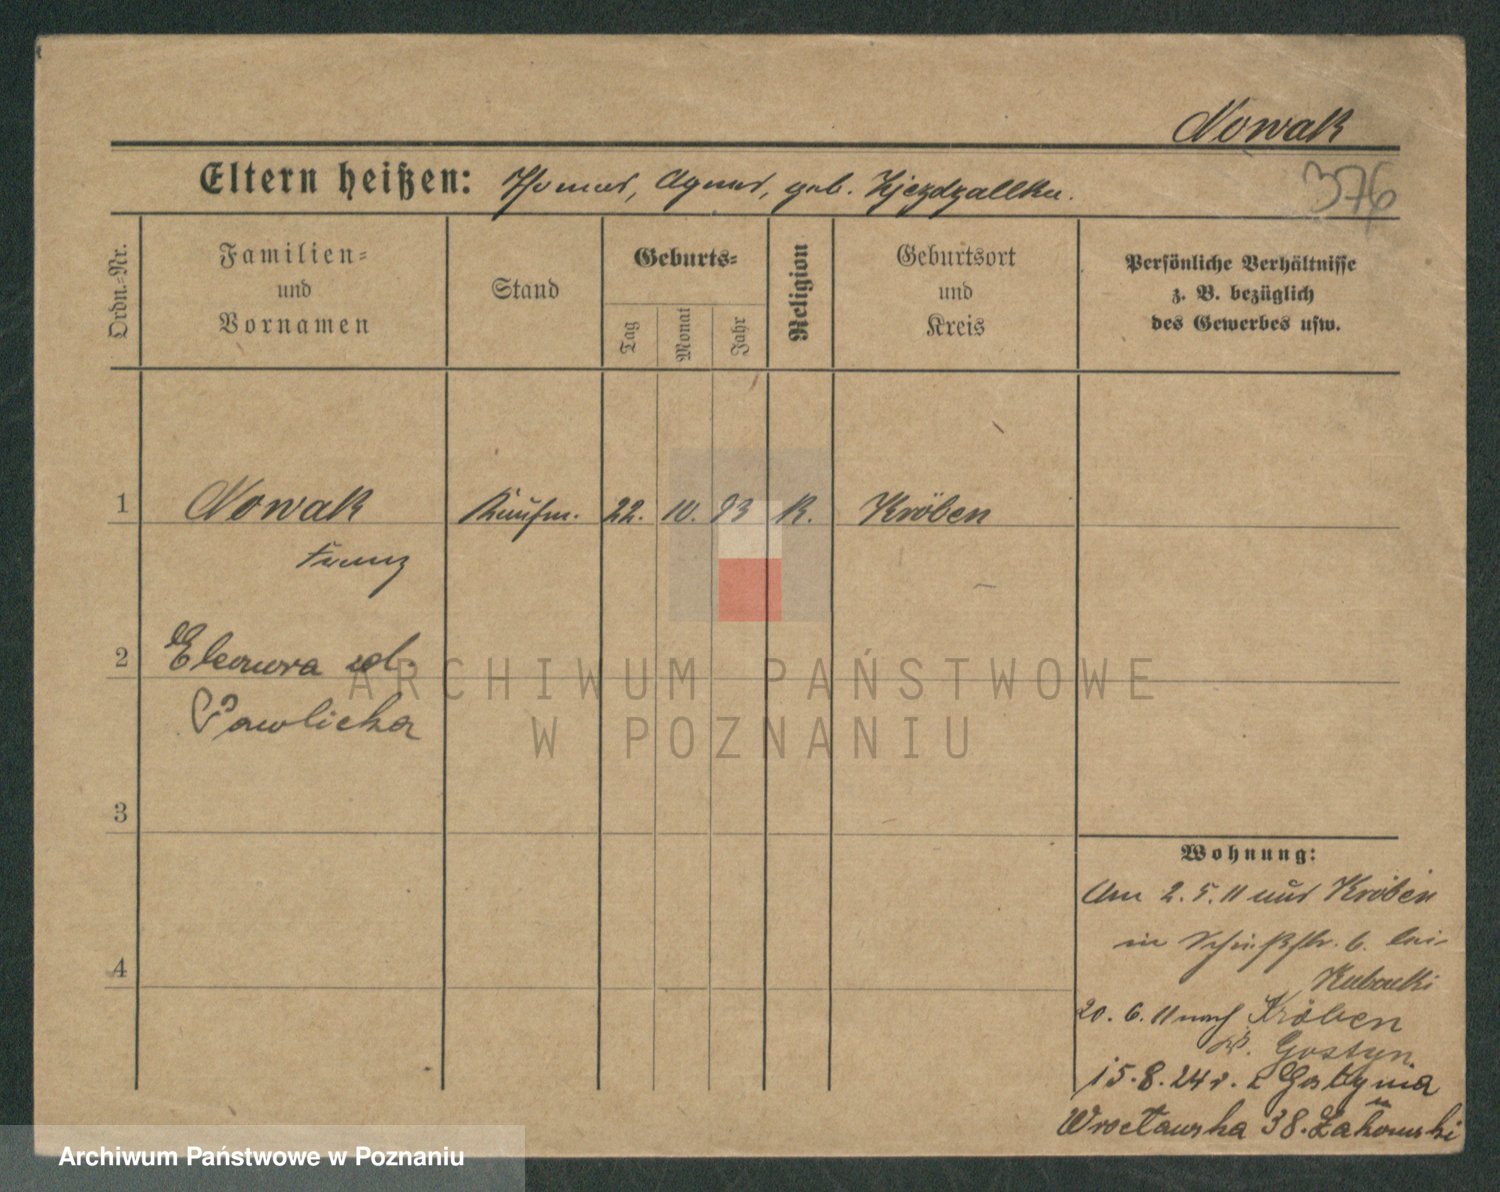 Nowak
376
Eltern heißen: Thomas, Agnes, geb. Zjezdzallka.
Ordn.=Nr.
Familien=
und
Vornamen
Stand
Geburts=
Tag
Monat
Jahr
Religion
Geburtsort
und
Kreis
Persönliche Verhältnisse
z. B. bezüglich
des Gewerbes usw.
1 Nowak Kaufm. 22. 10. 93 K. Kröben
Franz
2 Eleonora zd.
Pawlicka
3
4
Wohnung:
Am 2. 5. 11 aus Kröben
in Schießstr. 6. bei
Kubacki
20. 6. 11 nach Kröben
Gostyn.
15. 8. 24 r. z Gostynia
Wrocławska 38. Żakowski
ARCHIWUM PAŃSTWOWE
W POZNANIU
Archiwum Państwowe w Poznaniu